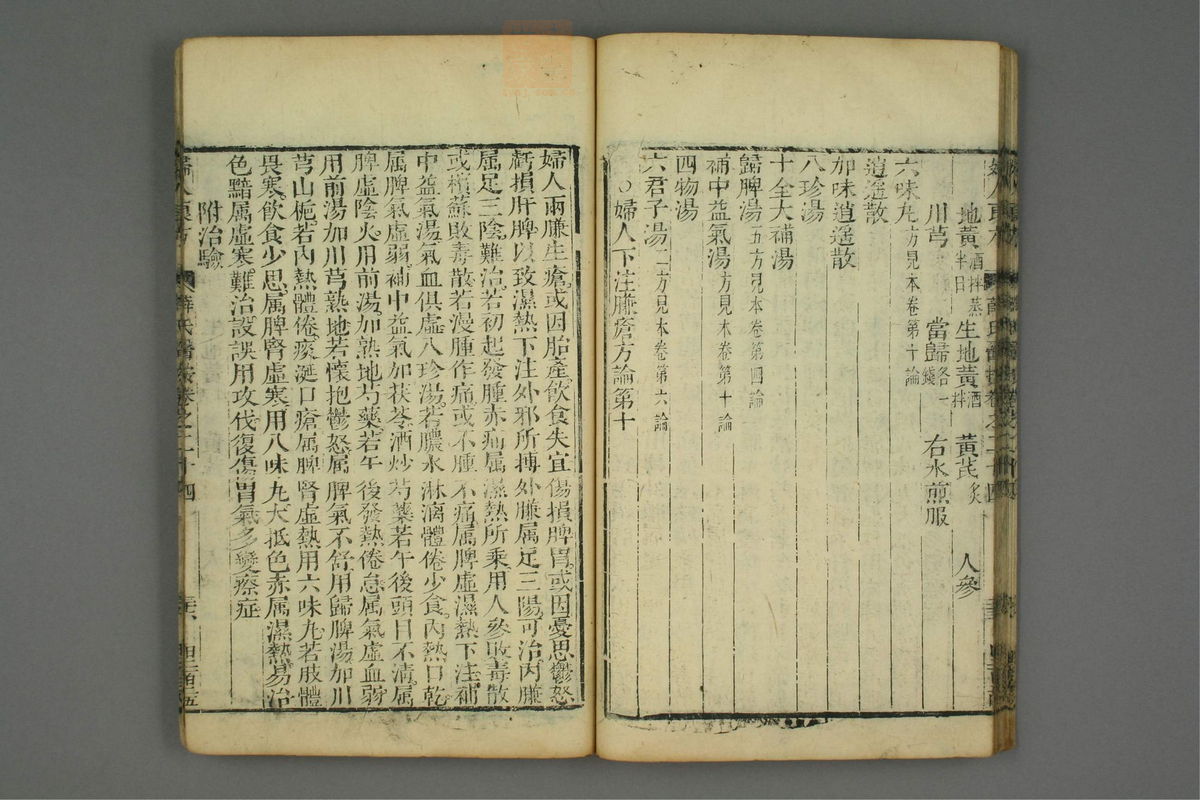 地黃酒拌蒸半日 生地黃酒拌 黃芪炙 人參
川芎 當歸各一錢 右水煎服
六味丸方見本卷第十論
逍遥散
加味逍遥散
八珍湯
十全大補湯
歸脾湯五方見本卷第四論
補中益氣湯方見本卷第十論
四物湯
六君子湯二方見本卷第六論
○婦人下注臁瘡方論第十
婦人兩臁生瘡或因胎產飲食失宜傷損脾胃或因憂思鬱怒
虧損肝脾以致濕熱下注外邪所搏外臁属足三陽可治內臁
属足三陰難治若初起發腫赤痛属濕熱所乘用人參敗毒散
或檳蘇敗毒散若漫腫作痛或不腫不痛属脾虛濕熱下注補
中益氣湯氣血俱虛八珍湯若膿水淋漓體倦少食內熱口乾
属脾氣虛弱補中益氣加茯苓酒炒芍藥若午後頭目不清属
脾虛陰火用前湯加熟地芍藥若午後發熱倦怠属氣虛血弱
用前湯加川芎熟地若懷抱鬱怒属脾氣不舒用歸脾湯加川
芎山梔若內熱體倦痰涎口瘡属脾腎虛熱用六味丸若肢體
畏寒飲食少思属脾腎虛寒用八味丸大抵色赤属濕熱易治
色黯属虛寒難治設誤用攻伐復傷胃氣多變瘵症
附治驗
婦人良方 薛氏醫按卷之二十四